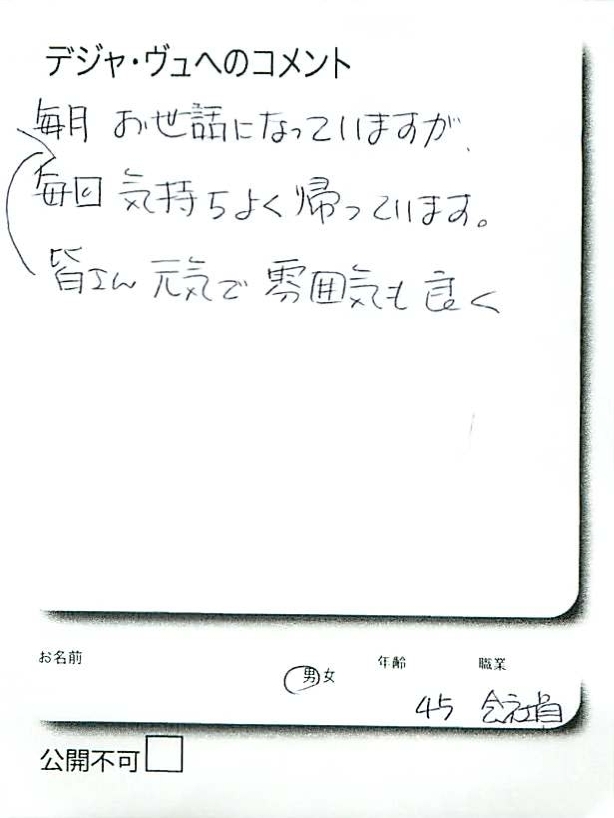 デジャ・ヴュへのコメント
毎月 お世話になっていますが、
毎回 気持ちよく帰っています。
皆さん 元気で 雰囲気も良く
お名前
男女
年齢
職業
45 会社員
公開不可